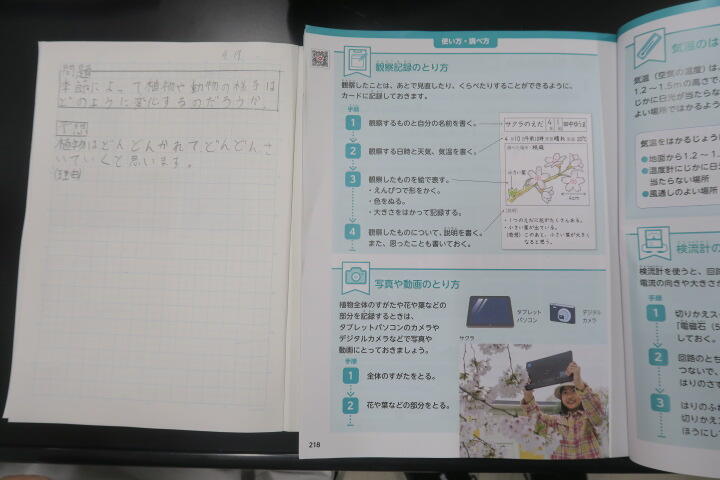 問題
季節によって植物や動物の様子は
どのように変化するのだろうか。
予想
植物はどんどんかれて、どんどんさ
いていくと思います。
理由
使い方・調べ方
観察記録のとり方
観察したことは、あとで見直したり、くらべたりすることができるように、
カードに記録しておきます。
手順
1 観察するものと自分の名前を書く。
2 観察する日時と天気、気温を書く。
3 観察したものを絵で表す。
・えんぴつで形をかく。
・色をぬる。
・大きさをはかって記録する。
4 観察したものについて、説明を書く。
また、思ったことも書いておく。
サクラのえだ 4年1組 田中ゆうま
小さい葉
4cm
・1つのえだに花がたくさんある。
・小さい葉が出ている。
このあと、小さい葉が大きく
なると思う。
写真や動画のとり方
植物全体のすがたや花や葉などの
部分を記録するときは、
タブレットパソコンのカメラや
デジタルカメラなどで写真や
動画にとっておきましょう。
手順
1 全体のすがたをとる。
2 花や葉などの部分をとる。
タブレット
パソコン
デジタル
カメラ
サクラ
218
気温のは
気温（空気の温度）は、
1.2～1.5mの高さで
じかに日光が当たらな
い場所ではかるよう
気温をはかるじょう
●地面から1.2～1.
●温度計にじかに日
当たらない場所
●風通しのよい場所
検流計の
検流計を使うと、回路
電流の向きや大きさか
手順
1 切りかえス
「電磁石（5
しておく。
2 回路のとち
つないで、
はりのさす
3 はりのふれ
切りかえス
ほうにして